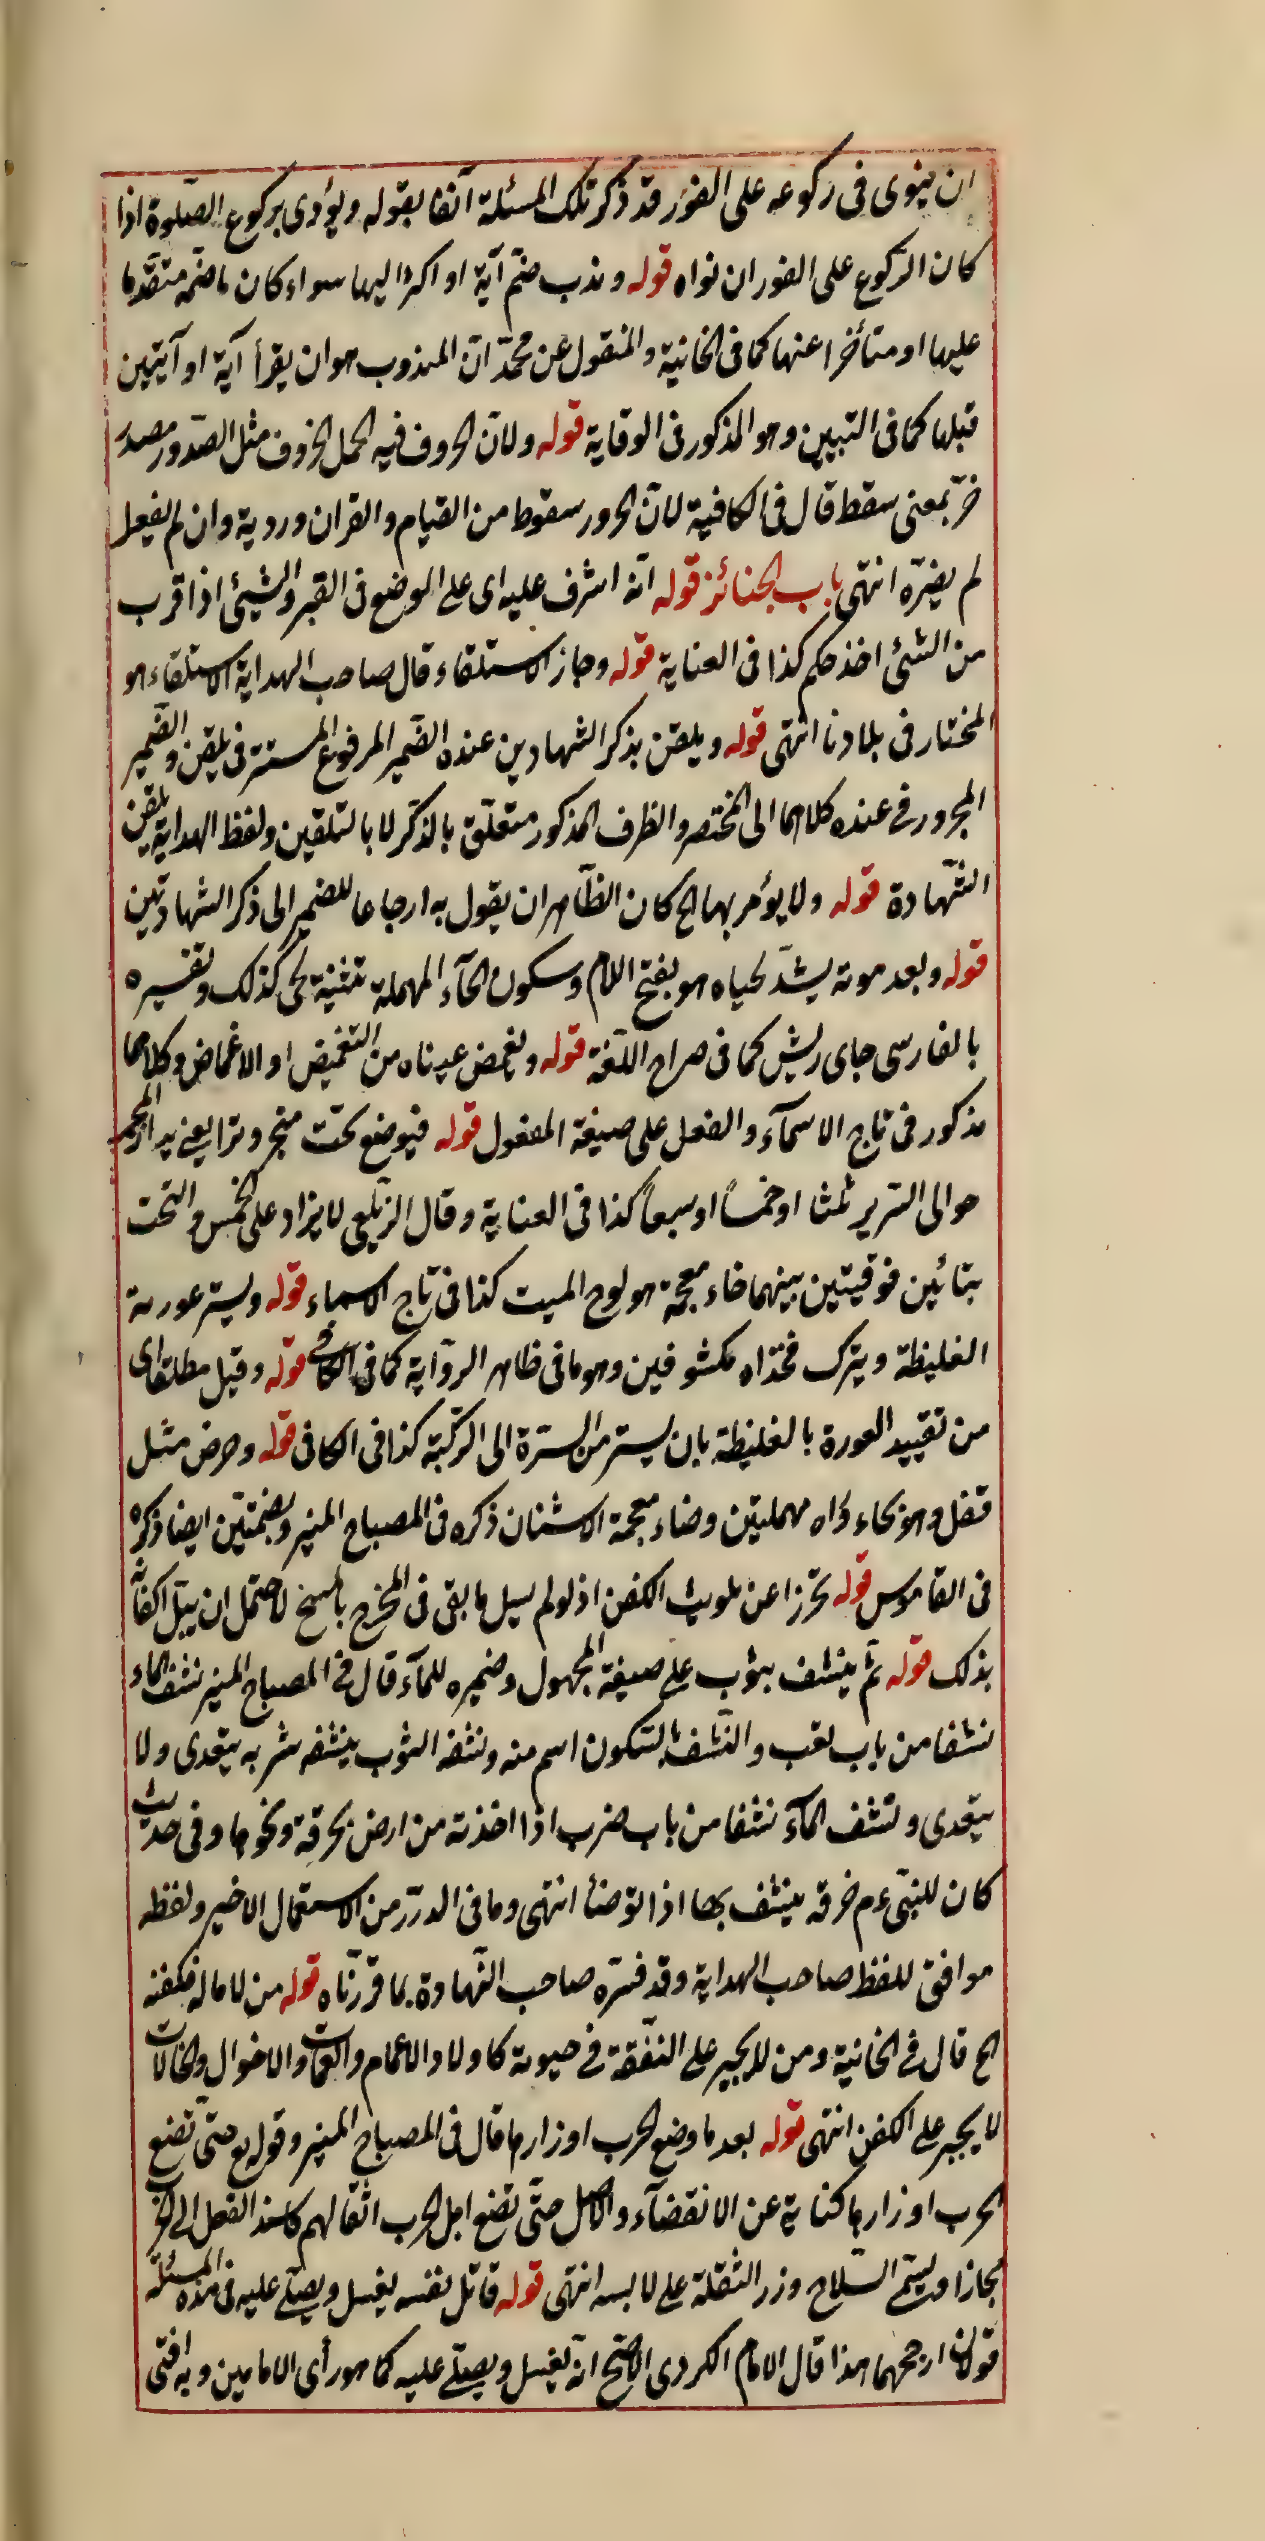 ان ينوى فى ركوعه على الفور قد ذكر تلك المسئلة آنفا بقوله ويؤدى بركوع الصلوة اذا
كان الركوع على الفور ان نواه قوله وندب ضم آية او اكثر اليها سواء كان ما ضمه متقدما
عليها او متأخرا عنها كما فى الخانية والمنقول عن محمد ان المندوب هو ان يقرأ آية او آيتين
قبلها كما فى التبيين وهو المذكور فى الوقاية قوله ولان الخرور فيه الخ الخرور مثل الصدور مصدر
خر بمعنى سقط قال فى الكافية لان الخرور سقوط من القيام والقران ورد به وان لم يفعل
لم يضره انتهى باب الجنائز قوله انه اشرف عليه اى على الوضع فى القبر والشيئ اذا قرب
من الشئ اخذ حكمه كذا فى العناية قوله وجاز الاستلقاء قال صاحب الهداية الاستلقاء هو
المختار فى بلادنا انتهى قوله ويلقن بذكر الشهادين عنده الضمير المرفوع المستتر فى يلقن والضمير
المجرور فى عنده كلاهما الى المختصر والظرف المذكور متعلق بالذكر لا بالتلقين ولفظ الهداية يلقن
الشهادة قوله ولا يؤمر بها الخ كان الظاهر ان يقول به ارجاعا للضمير الى ذكر الشهادتين
قوله وبعد موته يشد لحياه هو بفتح اللام وسكون الحاء المهملة تثنية لحى كذلك وتفسيره
بالفارسى جاى ريش كما فى صراح اللغة قوله ويغمض عيناه من التغميض او الاغماض وكلاهما
مذكور فى تاج الاسماء والفعل على صيغة المفعول قوله فيوضع تحت مجمر وترا يعنى يدار المجمر
حوالى السرير ثلثا او خمسا او سبعا كذا فى العناية وقال الزيلعى لا يزاد على الخمس والتخت
بتائين فوقيتين بينهما خاء معجمة هو لوح الميت كذا فى تاج الاسماء قوله ويستر عورته
الغليظة ويترك فخذاه مكشوفين وهو ما فى ظاهر الرواية كما فى الكافى قوله وقيل مطلقا اى
من تقييد العورة بالغليظة بان يستر من السرة الى الركبة كذا فى الكافى قوله وحرض مثل
قفل وهو بحاء وراء مهملتين وضاء معجمة الاشنان ذكره فى المصباح المنير وبضمتين ايضا ذكره
فى القاموس قوله تحرزا عن تلويث الكفن اذ لو لم يسيل ما بقى فى المخرج بالمسح لاحتمل ان يبتل اكفانه
بذلك قوله ثم ينشف بثوب على صيغة المجهول وضميره للماء قال فى المصباح المنير نشف الماء
نشفا من باب تعب والنشف بالسكون اسم منه ونشفه الثوب ينشفه شربه يتعدى ولا
يتعدى ونشف الماء نشفا من باب ضرب اذا اخذته من ارض بخرقة ونحوها وفى حديث
كان للنبى عم خرقة ينشف بها اذا توضأ انتهى وما فى الدرر من الاستعمال الاخير ولفظه
موافق للفظ صاحب الهداية وقد فسره صاحب النهاوة بما قررناه قوله من لا مال له فكفنه
الخ قال فى الخانية ومن لا يجبر على النفقة فى حيوته كاولاد الاعمام والعمات والاخوال والخالات
لا يجبر على الكفن انتهى قوله بعد ما وضع الحرب اوزارها قال فى المصباح المنير وقوله تع حتى تضع
الحرب اوزارها كناية عن الانقضاء والاصل حتى تضع اهل الحرب اثقالهم فاسند الفعل الى الحرب
مجازا ويسمى السلاح وزر الثقلة على لابسه انتهى قوله قاتل نفسه يغسل ويصلى عليه فى هذه المسئلة
قولان ارجحهما هذا قال الامام الكردى الاصح انه يغسل ويصلى عليه كما هو رأى الامامين وبه افتى